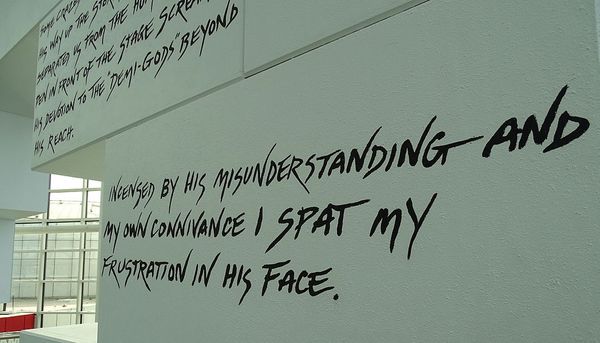 SOME CRAZED
HIS WAY UP THE STE
SEPARATED US FROM THE HO
PEN IN FRONT OF THE STAGE SCREAM
HIS DEVOTION TO THE "DEMI-GODS" BEYOND
HIS REACH.
INCENSED BY HIS MISUNDERSTANDING AND
MY OWN CONNIVANCE I SPAT MY
FRUSTRATION IN HIS FACE.